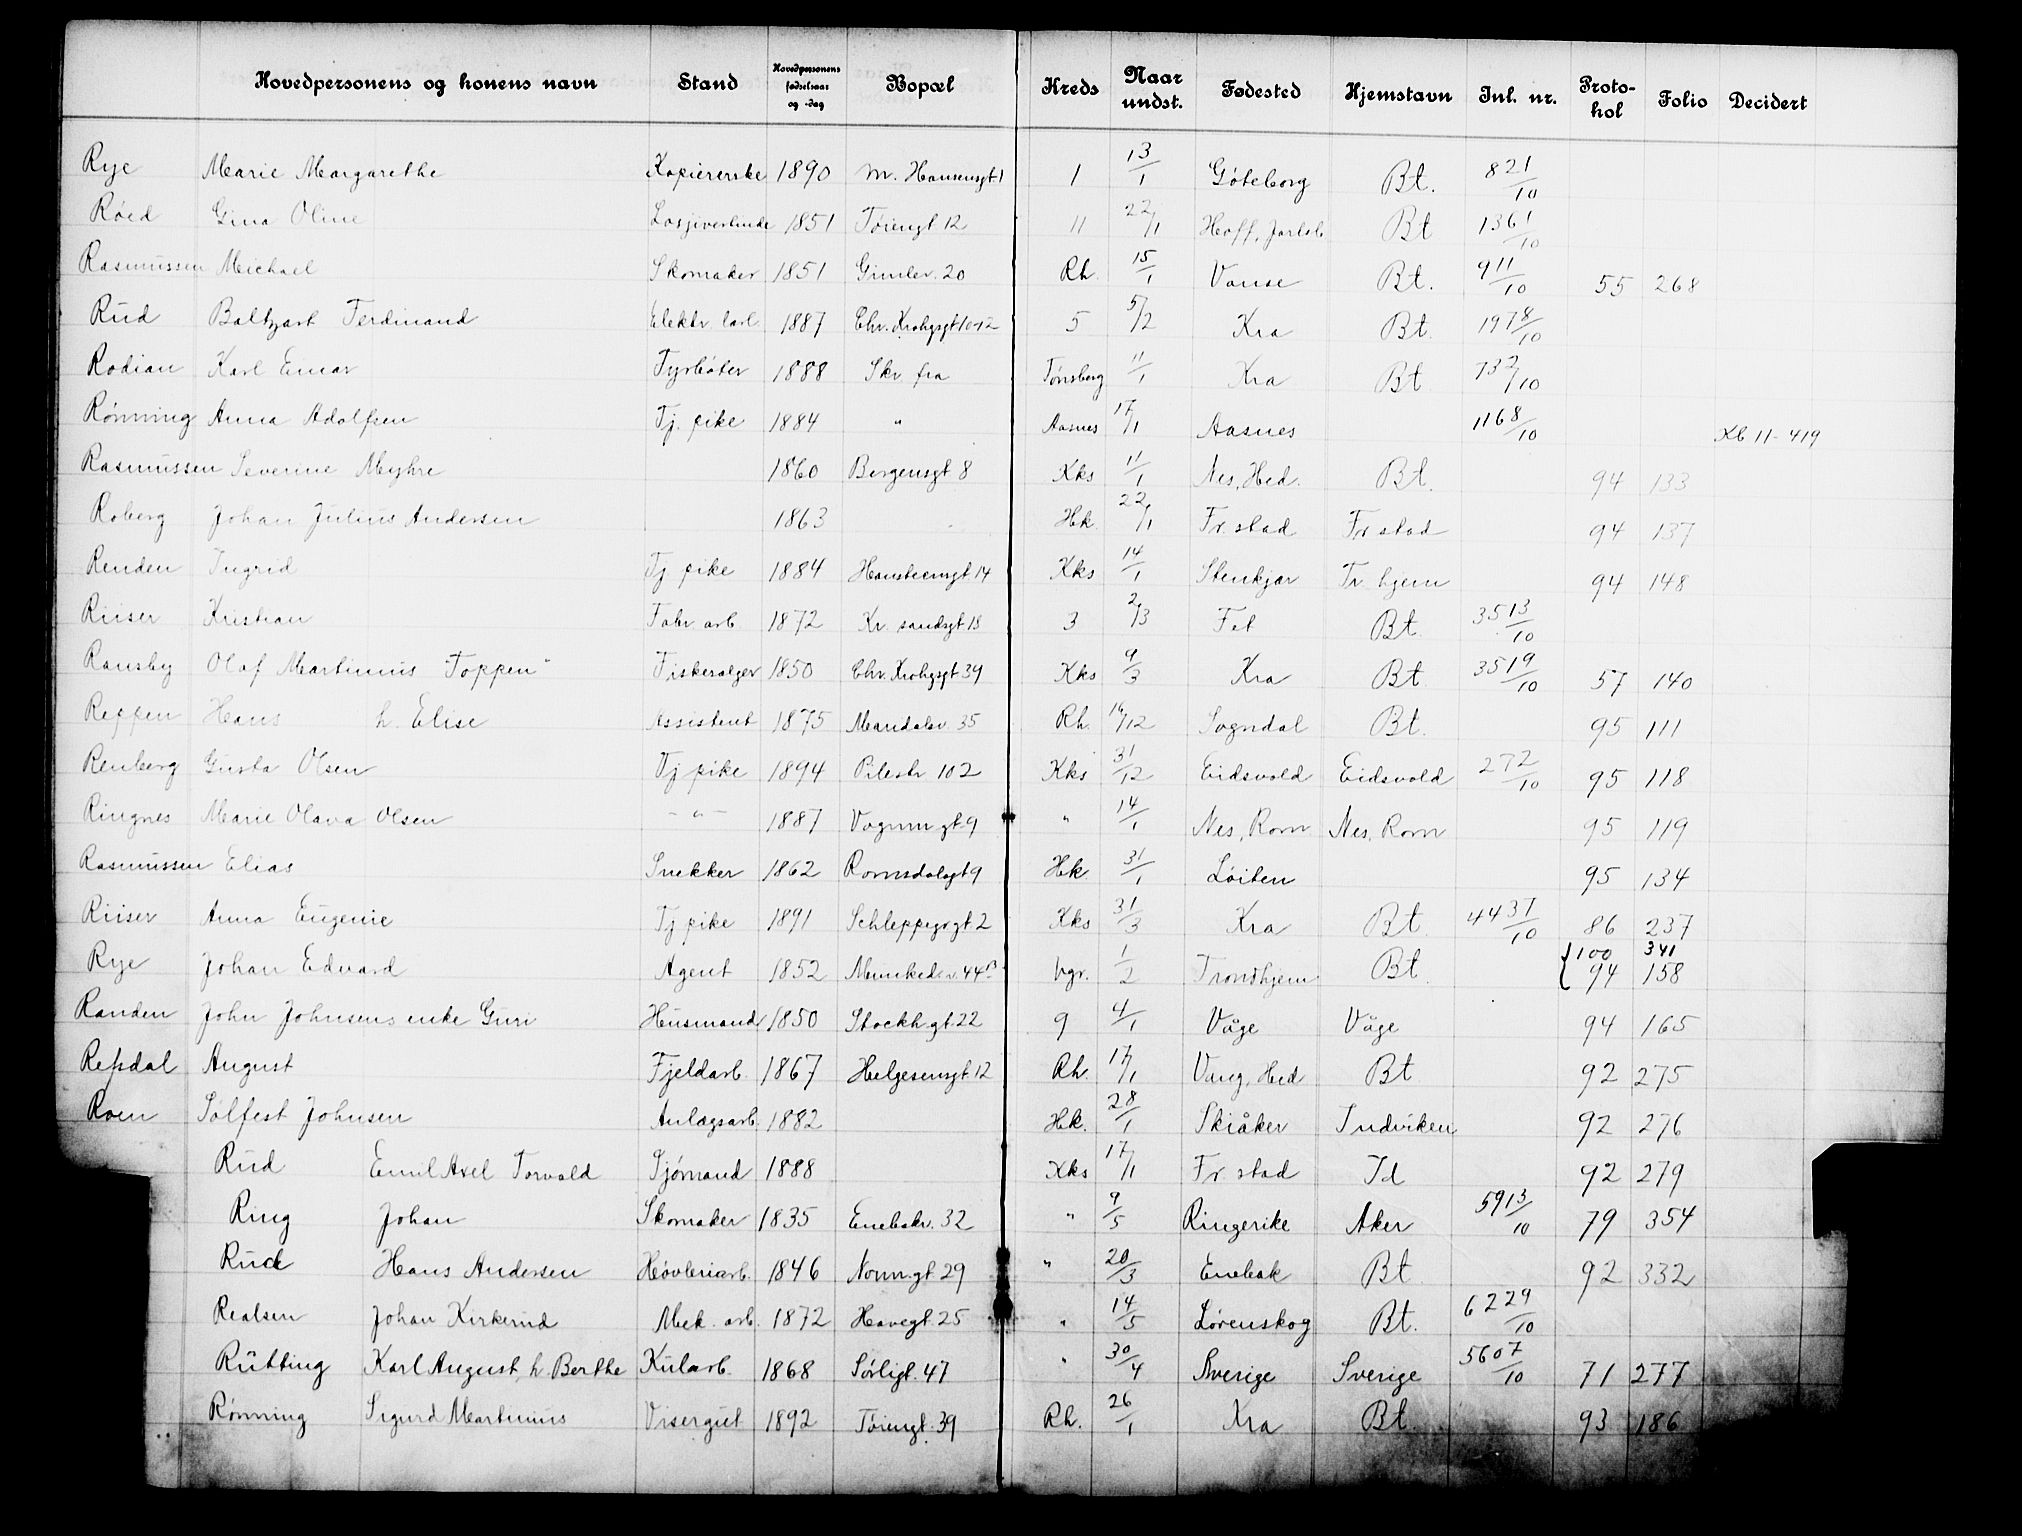 Hovedpersonens og konens navn Stand Hovedpersonens fødselsaar og -dag Bopæl Kreds Naar undst. Fødested Hjemstavn Inl. nr. Protokol Folio Decidert
Rye Marie Margarethe Kopiererske 1890 M. Hansensgt 1 1 13/1 Göteborg Bt. 821/10
Røed Gina Oline Losjivertinde 1851 Tøiengt 12 11 22/1 Hoff, Jarlsb. Bt 1361/10
Rasmussen Michael Skomaker 1851 Gimlev. 20 Rh. 15/1 Vanse Bt. 911/10 55 268
Rud Baltzart Ferdinand Elektr. lærl 1887 Chr. Krohgsgt 10-12 5 5/2 Kra Bt. 1978/10
Rodian Karl Einar Fyrbøter 1888 Skr fra Tønsberg 11/1 Kra Bt 732/10
Rønning Anna Adolfsen Tj. pike 1884 " Aasnes 17/1 Aasnes 1168/10 Kb 11-419
Rasmussen Severine Myhre 1860 Bergensgt 8 Kks 11/1 Nes, Hed. Bt. 94 133
Roberg Johan Julius Andersen 1863 Hk. 22/1 Fr. stad Fr stad 94 137
Renden Ingrid Tj pike 1884 Hansteensgt 14 Kks 14/1 Stenkjær Tr. hjem 94 148
Riiser Kristian Fabr. arb. 1872 Kr. sandsgt 18 3 2/3 Fet Bt. 3513/10
Ransby Olaf Martinius "Toppen" Fiskesælger 1850 Chr. Krohgsgt 39 Kks 9/3 Kra Bt. 3519/10 57 140
Reppen Hans h. Elise Assistent 1875 Mandalsv. 35 Rh. 14/12 Sogndal Bt. 95 111
Renberg Gusta Olsen Tj pike 1894 Pilestr. 102 Kks 31/12 Eidsvold Eidsvold 272/10 95 118
Ringnes Marie Olava Olsen - " - 1887 Vognm.gt. 9 " 14/1 Nes, Rom Nes, Rom 95 119
Rasmussen Elias Snekker 1862 Romsdalsgt 9 Hk 31/1 Løiten 95 134
Riiser Anna Eugenie Tj pike 1891 Schleppegr.gt. 2 Kks 31/3 Kra Bt. 4437/10 86 237
Rye Johan Edvard Agent 1852 Munkeds.v. 44B Vgr. 1/2 Trondhjem Bt. {100 341
{94 158
Randen John Johnsens enke Guri Husmands 1850 Stockh.gt. 22 9 4/1 Våge Våge 94 165
Repsdal August Fjeldarb. 1867 Helgesensgt. 12 Rh. 17/1 Vang, Hed Bt. 92 275
Roen Solfest Johnsen Anlægsarb. 1882 Hk. 28/1 Skiåker Indviken 92 276
Rud Emil Axel Torvald Sjømand 1888 Kks 17/1 Fr. stad Id 92 279
Ring Johan Skomaker 1835 Enebakv. 32 " 9/5 Ringerike Aker 5913/10 79 354
Rud Hans Andersen Høvleriarb. 1846 Norm.gt. 29 " 20/3 Enebak Bt. 92 332
Realsen Johan Kirkerud Mek. arb. 1872 Havegt. 25 " 14/5 Lørenskog Bt. 6229/10
Rütting Karl August h. Berthe Kularb. 1868 Sørligt. 47 " 30/4 Sverige Sverige 5607/10 71 277
Rønning Sigurd Martinius Visergut 1892 Tøiengt. 39 Rh. 26/1 Kra Bt. 93 186